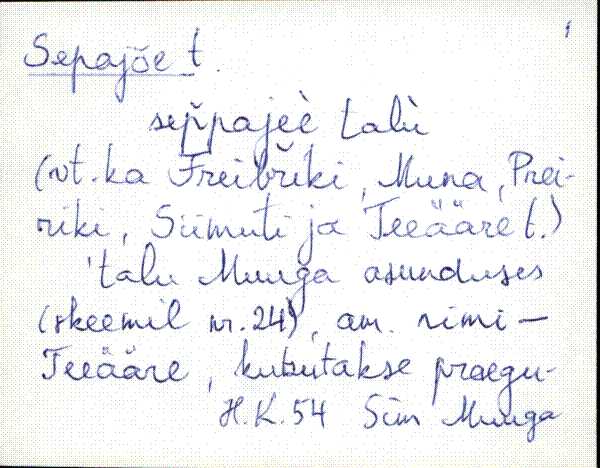 1
Sepajõe t.
sep̆pajeè talù
(vt. ka Freibřiki, Muna, Prei-
riki, Siimuti ja Teeääre t.)
'talu Muuga asunduses
(skeemil nr. 24), am. nimi –
Teeääre, kutsutakse praegu-
H.K. 54 Sim Muuga